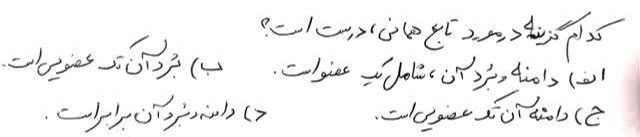 کدام گزینه در مورد تابع همانی، درست است؟
الف) دامنه و بُرد آن، شامل یک عضو است. ب) بُرد آن تک عضوی است.
ج) دامنه آن تک عضوی است. د) دامنه و بُرد آن برابر است.